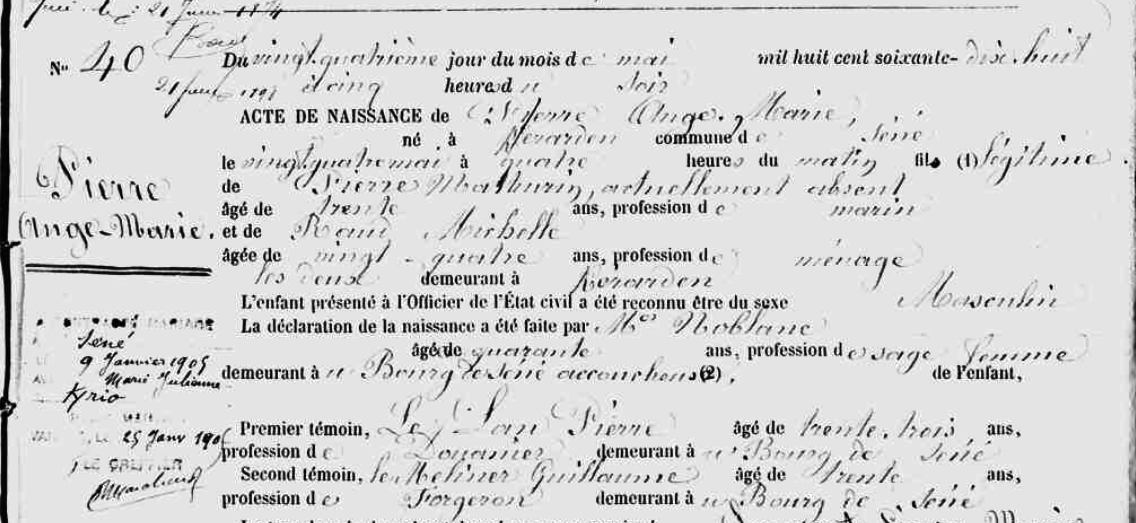 21 Juin
No 40
21 Juin
Du vingt-quatrième jour du mois de mai mil huit cent soixante-dix-huit
à cinq heures du soir
ACTE DE NAISSANCE de Pierre Ange-Marie,
né à Kerarden commune de Séné
le vingt quatre mai à quatre heures du matin fils (1) légitime
Pierre
Ange-Marie.
de Pierre Mathurin, actuellement absent
âgé de trente ans, profession de marin
et de Raud Michelle
âgée de vingt-quatre ans, profession de ménage
les deux demeurant à Kerarden
L'enfant présenté à l'Officier de l'État civil a été reconnu être du sexe Masculin
La déclaration de la naissance a été faite par Noblanc
âgée de quarante ans, profession de sage femme
demeurant au Bourg de Séné (2), de l'enfant,
A CONTRACTÉ MARIAGE
À Séné
LE 9 Janvier 1905
Marie Julienne
Kyrio
LE 25 Janv
LE GREFFIER
Premier témoin, Pierre âgé de trente-trois ans,
profession de Douanier demeurant au Bourg de Séné
Second témoin, Guillaume âgé de trente ans,
profession de Forgeron demeurant au Bourg de Séné